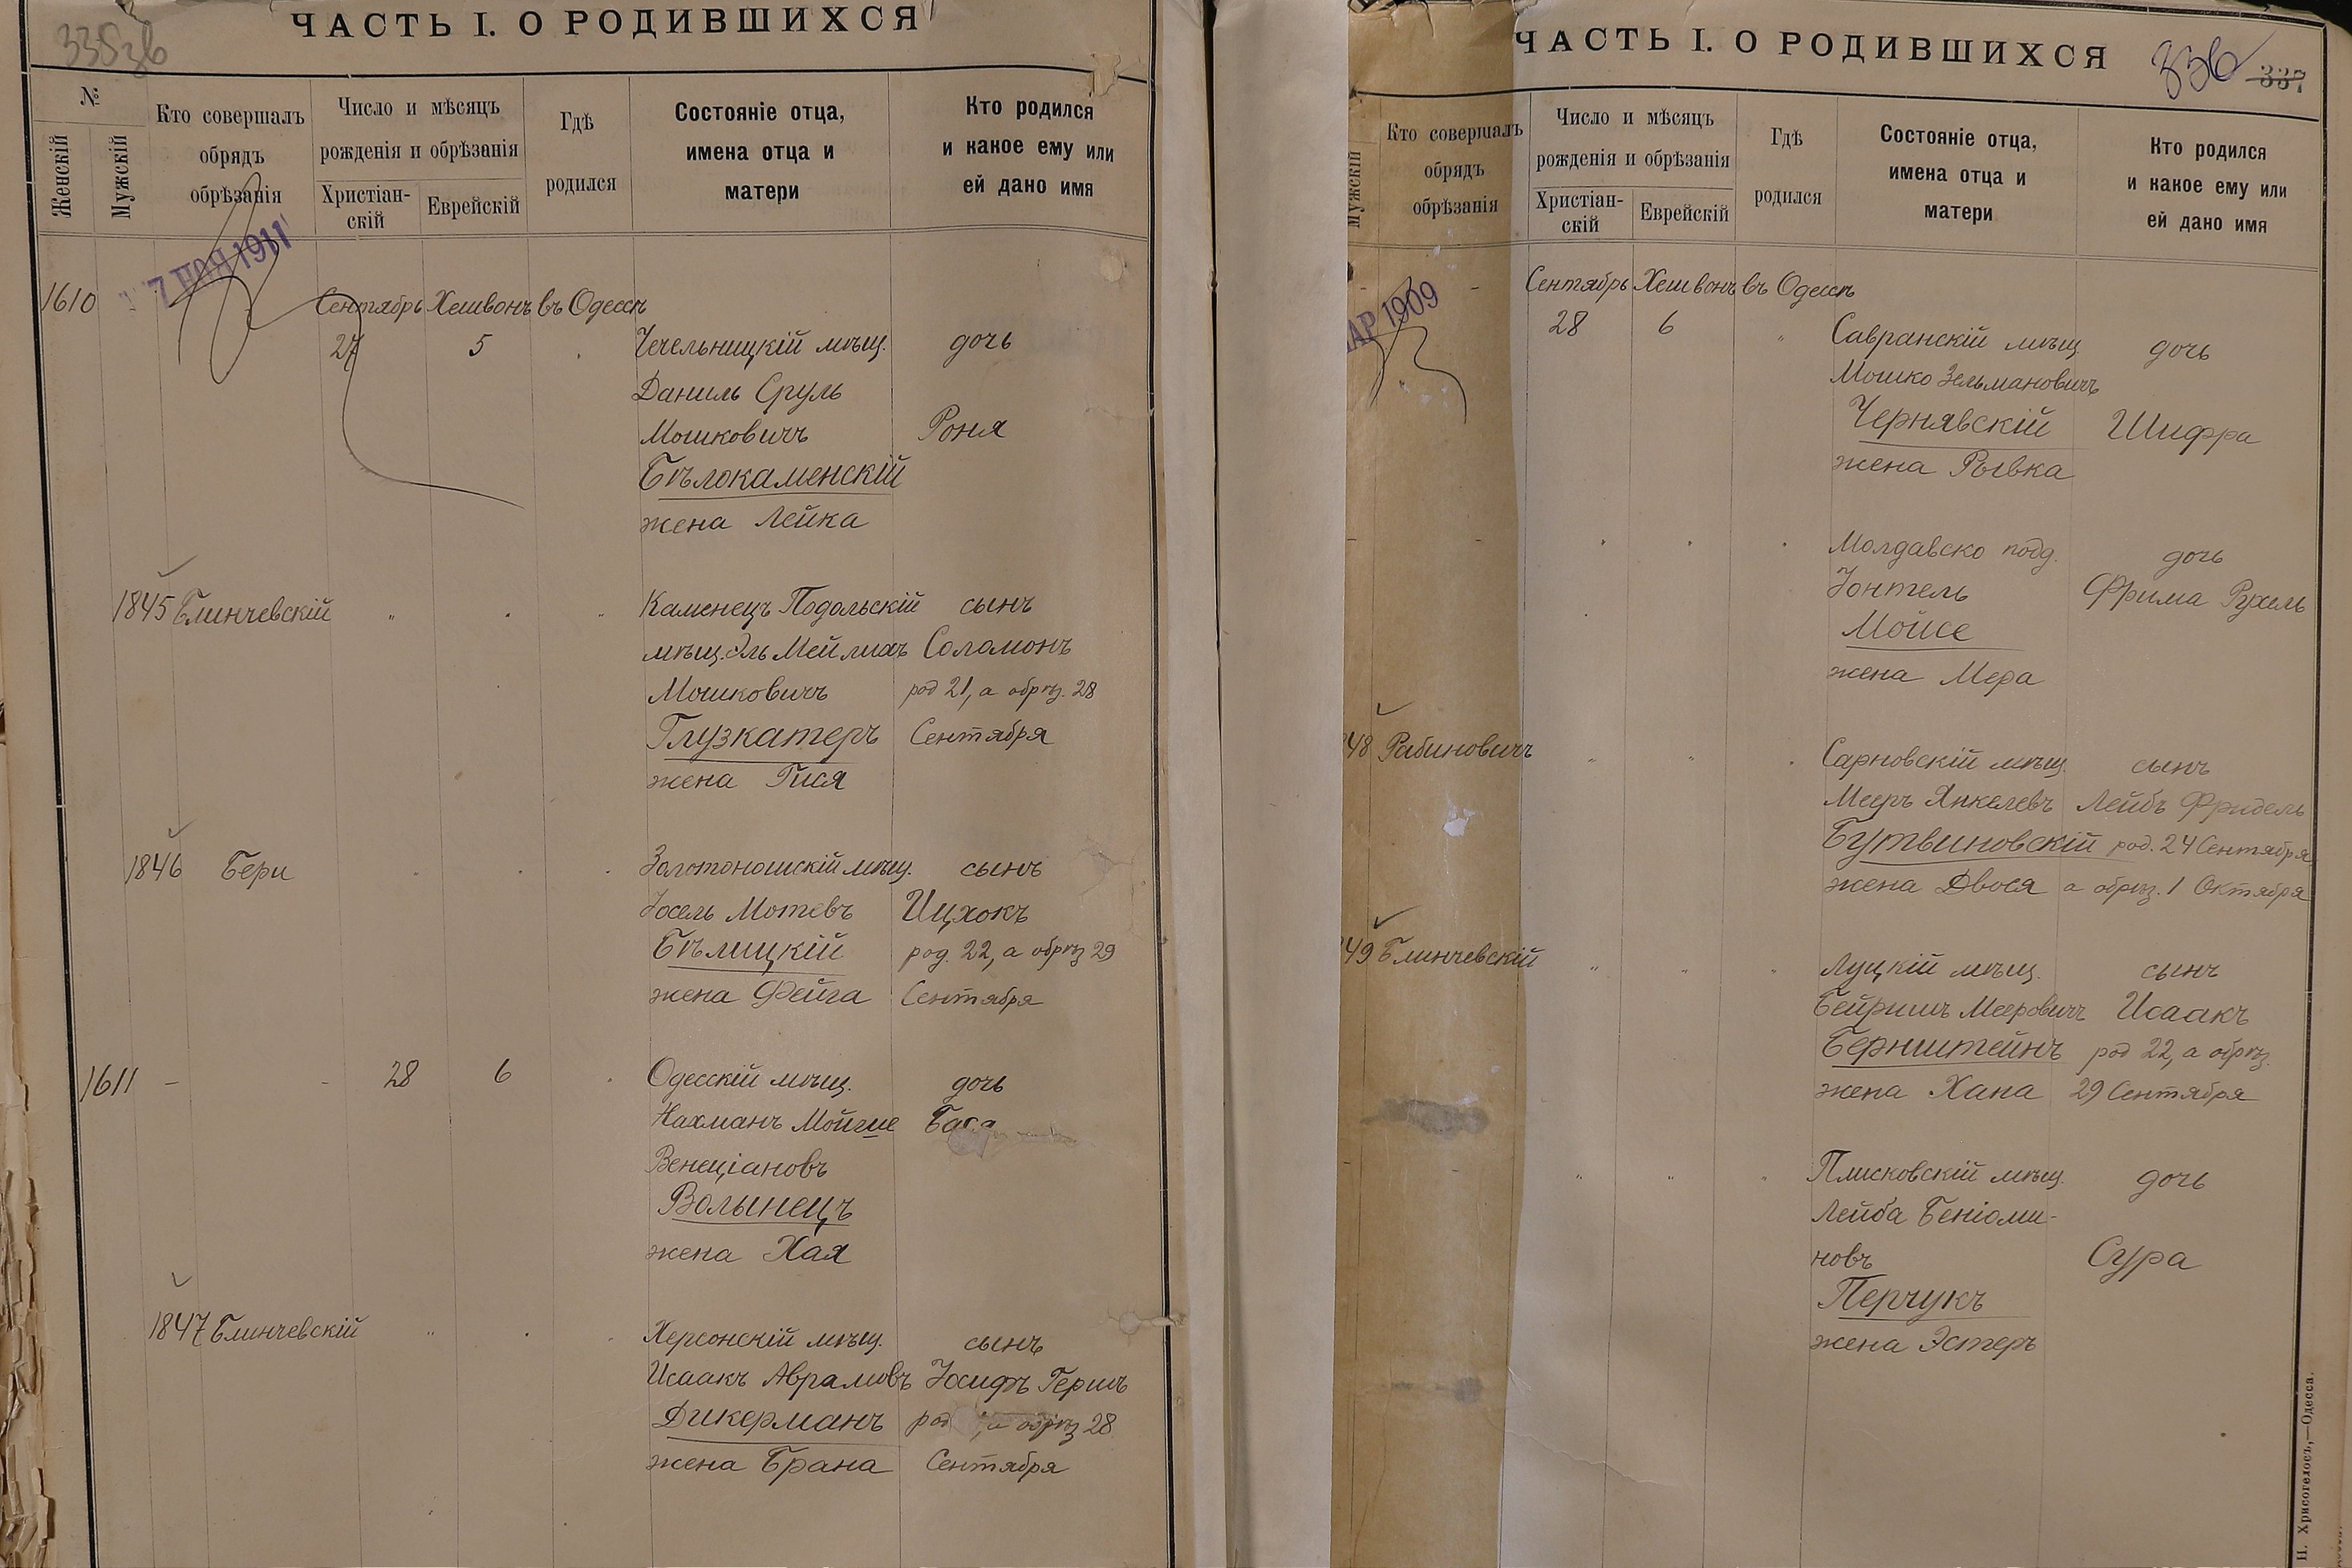 ЧАСТЬ I. О РОДИВШИХСЯ
335 зв
№
Женскій
Мужскій
Кто совершалъ
обрядъ
обрѣзанія
Число и мѣсяцъ
рожденія и обрѣзанія
Христіан-
скій
Еврейскій
Гдѣ
родился
Состояніе отца,
имена отца и
матери
Кто родился
и какое ему или
ей дано имя
7 НОЯ 1911
1610 - Сентябрь Хешвонъ въ Одессѣ
27 5 Чечельницкій мѣщ. дочь
Даниль Сруль
Мошковичъ Роня
Бѣлокаменскій
жена Лейка
1845 Блинчевскій " " " Каменецъ Подольскій сынъ
мѣщ. Эль Мейлихъ Соломонъ
Мошковичъ род 21, а обрѣз. 28
Глузкатеръ Сентября
жена Гися
1846 Бери Золотоношскій мѣщ. сынъ
Іосель Мотевъ Ицхокъ
Бѣлицкій род. 22, а обрѣз 29
жена Фейга Сентября
1611 - - 28 6 Одесскій мѣщ. дочь
Нахманъ Мойше Бася
Венеціановъ
Волынецъ
жена Хая
1847 Блинчевскій " Херсонскій мѣщ. сынъ
Исаакъ Аврамовъ Іосифъ Гершъ
Дикерманъ род , а обрѣз 28
жена Брана Сентября
ЧАСТЬ I. О РОДИВШИХСЯ
336 337
Мужскій
Кто совершалъ
обрядъ
обрѣзанія
Число и мѣсяцъ
рожденія и обрѣзанія
Христіан-
скій
Еврейскій
Гдѣ
родился
Состояніе отца,
имена отца и
матери
Кто родился
и какое ему или
ей дано имя
АР 1909
- - Сентябрь Хешвонъ въ Одессѣ
28 6 " Савранскій мѣщ. дочь
Мошко Зельмановичъ
Чернявскій Шифра
жена Рывка
Молдавско подд. дочь
Іонтель Фрима Рухель
Мойсе
жена Мера
48 Рабиновичъ " " Сарновскій мѣщ. сынъ
Мееръ Янкелевъ Лейбъ Фридель
Бутвиновскій род. 24 Сентября
жена Двося а обрѣз. 1 Октября
49 Блинчевскій " " " Луцкій мѣщ. сынъ
Бейришъ Мееровичъ Исаакъ
Бернштейнъ род 22, а обрѣз.
жена Хана 29 Сентября
" " " Плисковскій мѣщ. дочь
Лейба Беніоми-
новъ Сура
Перчукъ
жена Эстеръ
П. Хрисогелосъ,—Одесса.